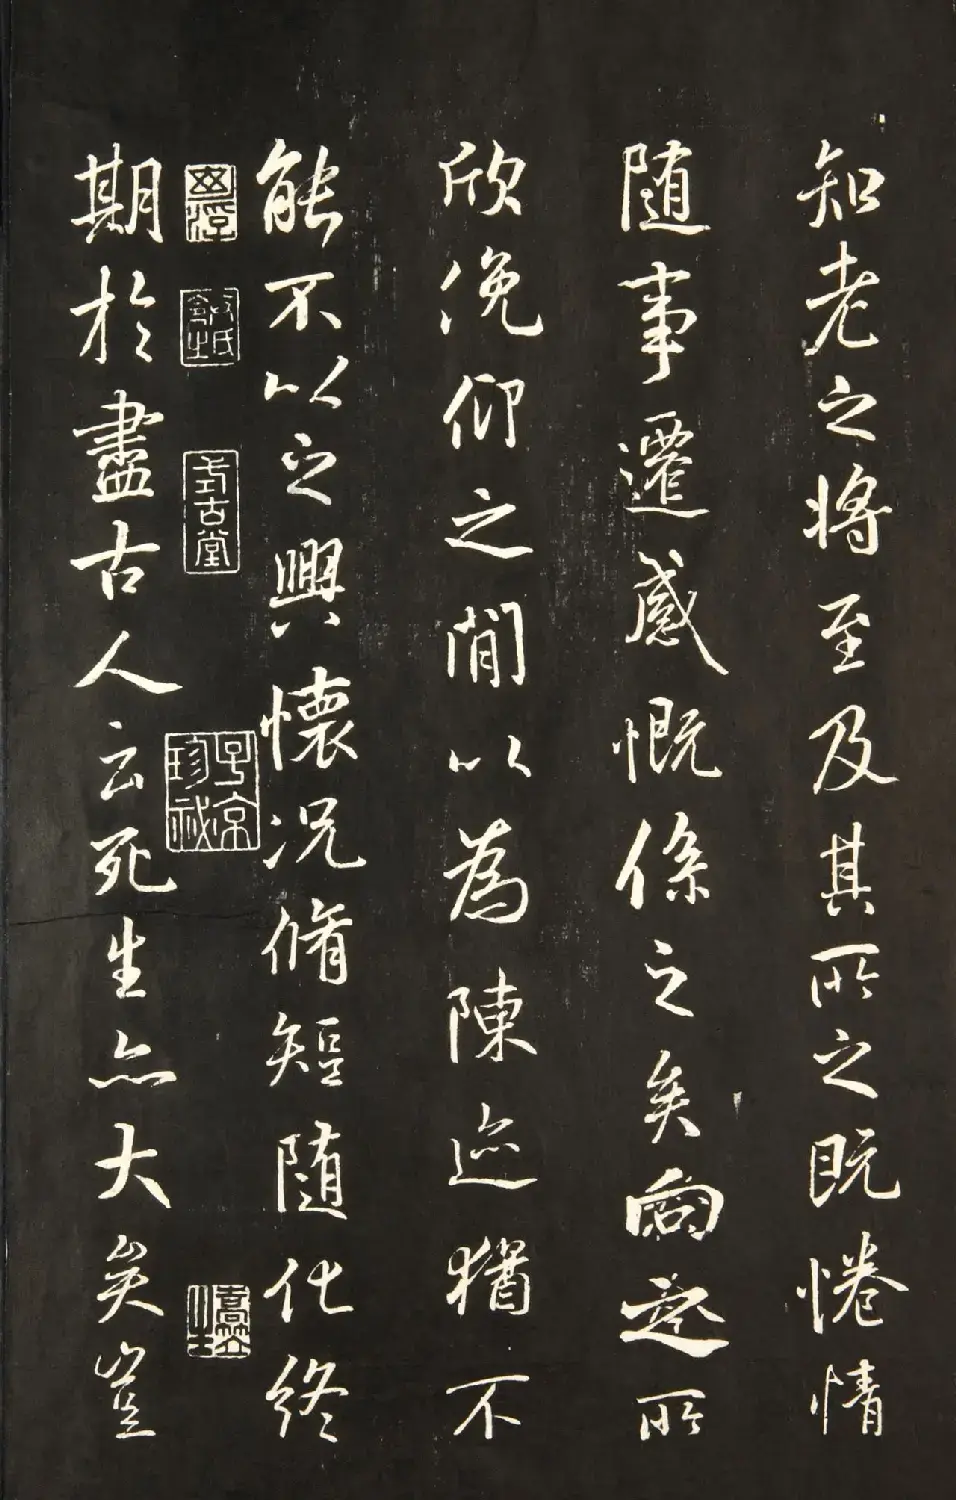 知老之将至及其所之既惓情
随事遷感慨係之矣向之所
欣俛仰之閒以為陳迹猶不
能不以之興懷况脩短随化終
式古堂
子京珍祕
期於盡古人云死生亦大矣豈